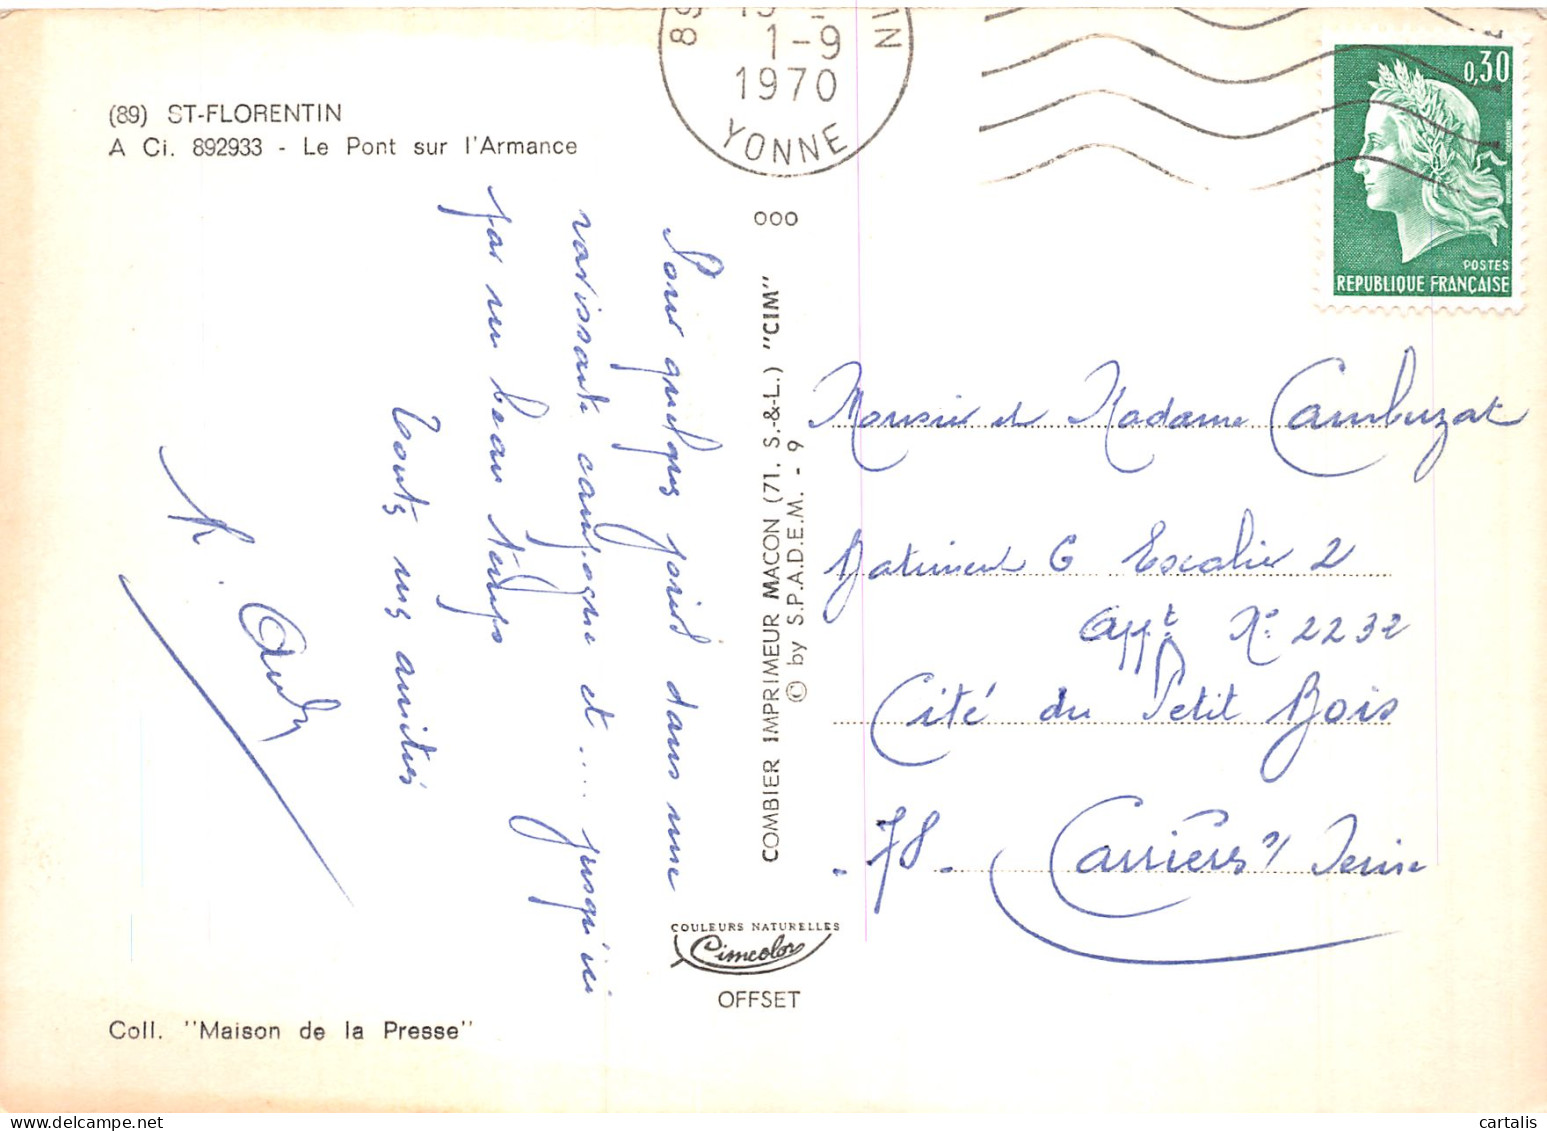 (89) ST-FLORENTIN
A Ci. 892933 - Le Pont sur l'Armance
1-9
1970
YONNE
0,30
POSTES
REPUBLIQUE FRANÇAISE
Pour quelques jours dans une
ravissante campagne et.... jusqu'ici
par un beau temps
Toutes mes amitiés
000
COMBIER IMPRIMEUR MACON (71. S.-&-L.) "CIM"
© by S.P.A.D.E.M. - 9
Monsieur et Madame Cambuzat
Batiment G Escalier 2
Appt N° 2232
Cité du Petit Bois
78 - Carrières s/ Seine
COULEURS NATURELLES
Cimcolor
OFFSET
Coll. "Maison de la Presse"
cartalis